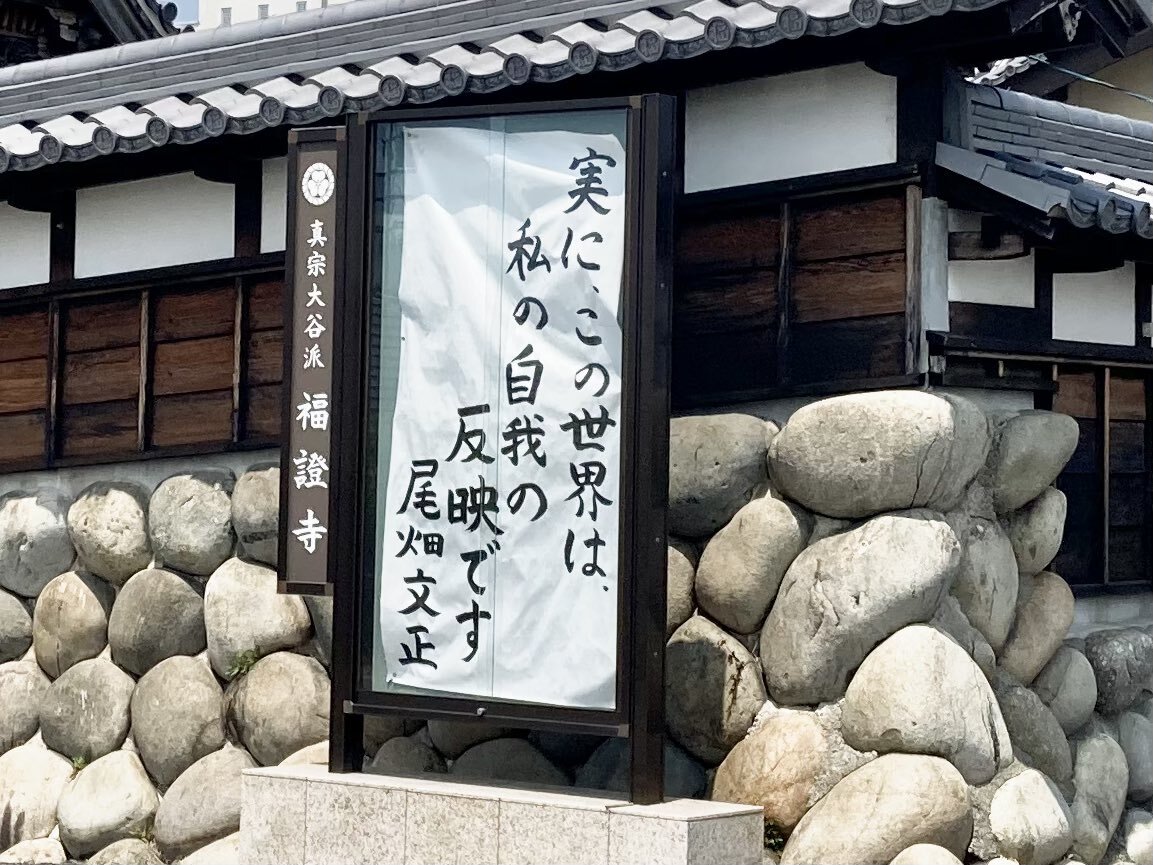 実に、この世界は、
私の自我の
反映です
尾畑文正
真宗大谷派 福證寺